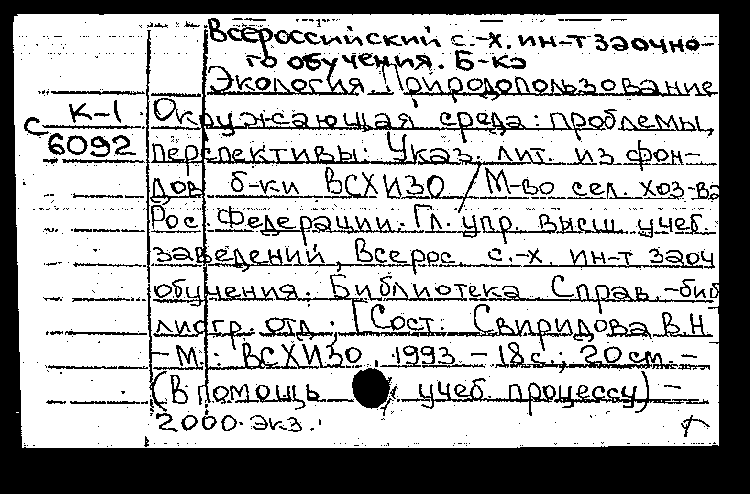 Всероссийский с.-х. ин-т заочно-
го обучения. Б-ка
Экология. Природопользование
К-1 Окружающая среда: проблемы,
с 6092 перспективы: Указ. лит. из фон-
дов б-ки ВСХИЗО / М-во сел. хоз-ва
Рос. Федерации. Гл. упр. высш. учеб.
заведений, Всерос. с.-х. ин-т заоч
обучения. Библиотека Справ.-биб
лиогр. отд.; [Сост. Свиридова В.Н
- М.: ВСХИЗО, 1993 - 18 с.; 20 см. -
(В помощь учеб. процессу) -
2000 экз.